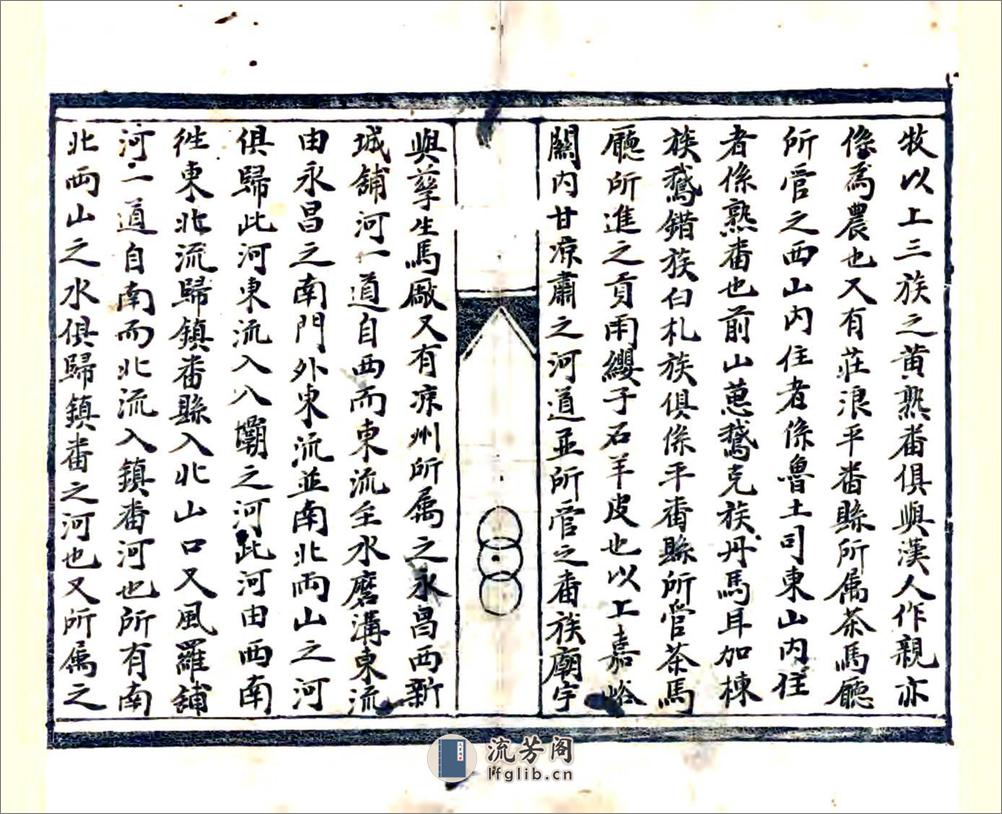 牧以上三族之黄熟番俱與漢人作親亦
係爲農也又有莊浪平番縣所属茶馬廳
所管之西山内住者係魯土司東山内住
者係熟番也前山蔥鵞克族丹馬耳加棟
族鵞錯族白札族俱係平番縣所管茶馬
廳所進之貢雨纓子石羊皮也以工嘉峪
關内甘凉肅之河道並所管之番族廟宇
與孳生馬厰又有凉州所属之永昌西新
城舖河一道自西而東流至水磨溝東流
由永昌之南門外東流並南北両山之河
俱歸此河東流入八壩之河此河由西南
徃東北流歸鎮番縣入北山口又風羅舖
河一道自南而北流入鎮番河也所有南
北両山之水俱歸鎮番之河也又所属之
流芳阁
lfglib.cn